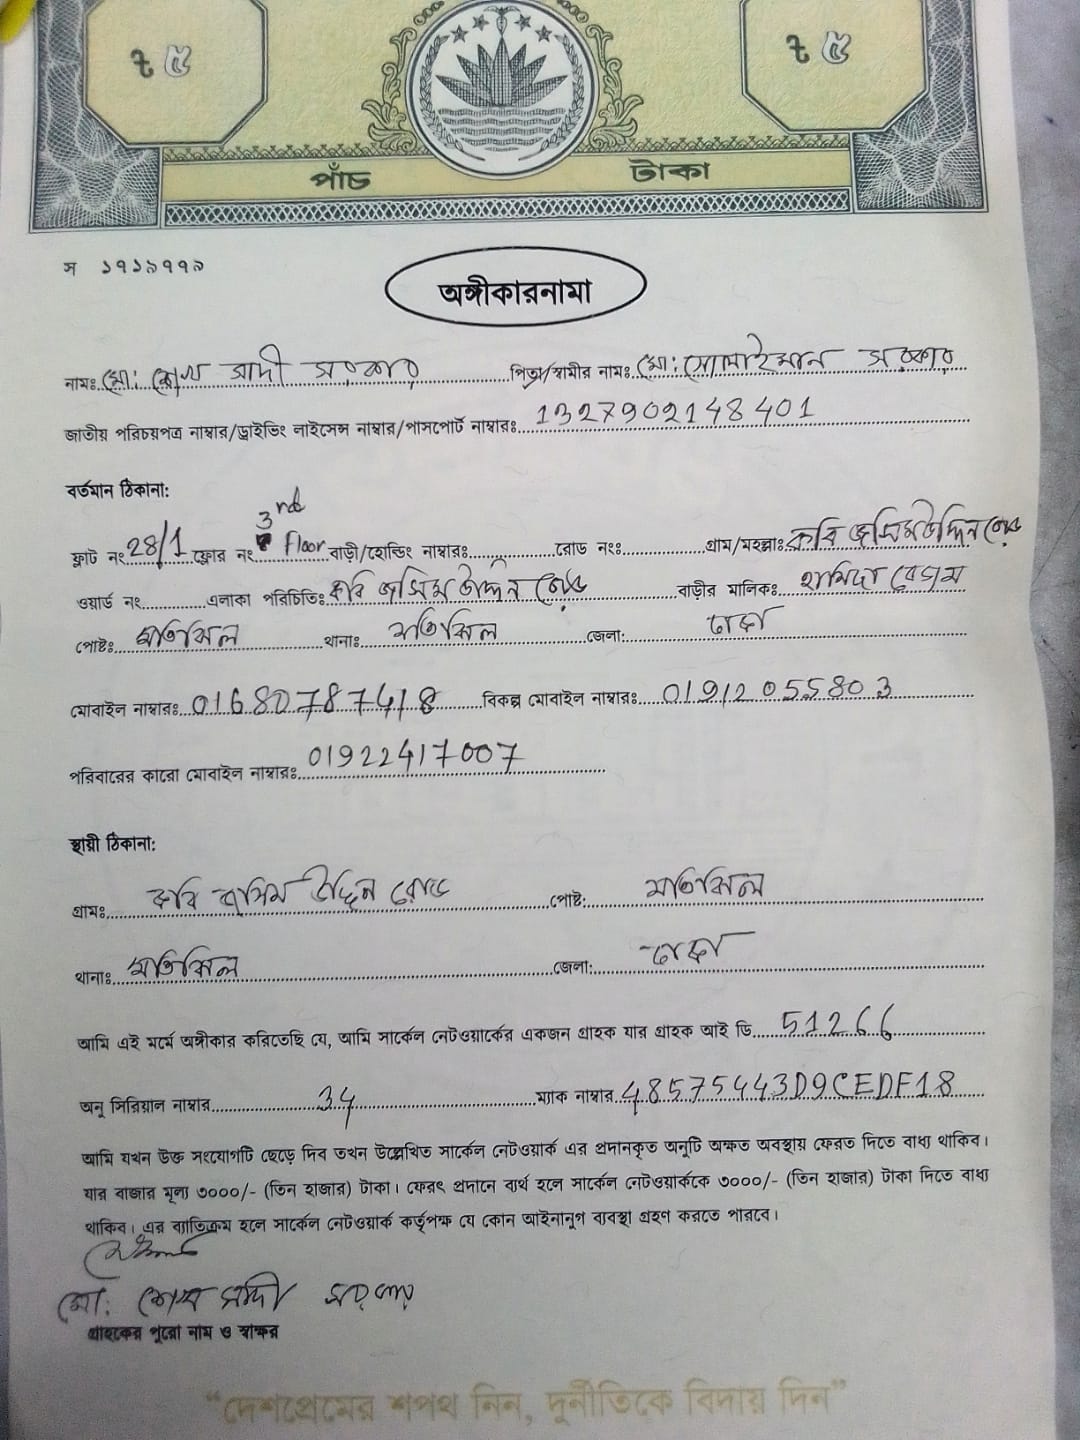 ৳ ৫ ৳ ৫
পাঁচ টাকা
স ১৭১৯৭৭৯
অঙ্গীকারনামা
নামঃ মো: শেখ সাদী সরকার পিতা/স্বামীর নামঃ মো: সোলাইমান সরকার
জাতীয় পরিচয়পত্র নাম্বার/ড্রাইভিং লাইসেন্স নাম্বার/পাসপোর্ট নাম্বারঃ 1327902148401
বর্তমান ঠিকানা:
ফ্লাট নং 28/1 ফ্লোর নং 3nd Floor বাড়ী/হোল্ডিং নাম্বারঃ রোড নংঃ গ্রাম/মহল্লাঃ কবি জসিমউদ্দিন রোড
ওয়ার্ড নং এলাকা পরিচিতিঃ কবি জসিম উদ্দিন রোড বাড়ীর মালিকঃ হামিদা বেগম
পোষ্টঃ মতিঝিল থানাঃ মতিঝিল জেলা: ঢাকা
মোবাইল নাম্বারঃ 01680787418 বিকল্প মোবাইল নাম্বারঃ 01912055803
পরিবারের কারো মোবাইল নাম্বারঃ 01922417007
স্থায়ী ঠিকানা:
গ্রামঃ কবি জসিম উদ্দিন রোড পোষ্ট: মতিঝিল
থানাঃ মতিঝিল জেলা: ঢাকা
আমি এই মর্মে অঙ্গীকার করিতেছি যে, আমি সার্কেল নেটওয়ার্কের একজন গ্রাহক যার গ্রাহক আই ডি 51266
অনু সিরিয়াল নাম্বার 34 ম্যাক নাম্বার 48575443D9CEDF18
আমি যখন উক্ত সংযোগটি ছেড়ে দিব তখন উল্লেখিত সার্কেল নেটওয়ার্ক এর প্রদানকৃত অনুটি অক্ষত অবস্থায় ফেরত দিতে বাধ্য থাকিব।
যার বাজার মূল্য ৩০০০/- (তিন হাজার) টাকা। ফেরৎ প্রদানে ব্যর্থ হলে সার্কেল নেটওয়ার্ককে ৩০০০/- (তিন হাজার) টাকা দিতে বাধ্য
থাকিব। এর ব্যাতিক্রম হলে সার্কেল নেটওয়ার্ক কর্তৃপক্ষ যে কোন আইনানুগ ব্যবস্থা গ্রহণ করতে পারবে।
মো: শেখ সাদী সরকার
গ্রাহকের পুরো নাম ও স্বাক্ষর
“দেশপ্রেমের শপথ নিন, দুর্নীতিকে বিদায় দিন”